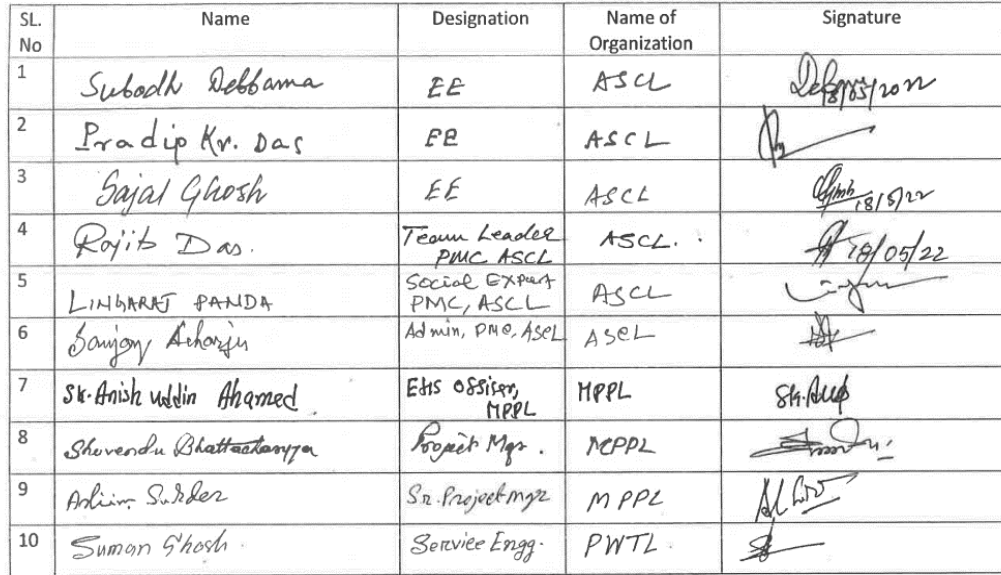 SL. No Name Designation Name of Organization Signature
1 Subodh Debbama EE ASCL 18/05/2022
2 Pradip Kr. Das EE ASCL
3 Sajal Ghosh EE ASCL 18/5/22
4 Rajib Das. Team Leader PMC ASCL ASCL. 18/05/22
5 LINGARAJ PANDA Social Expert PMC, ASCL ASCL
6 Sanjoy Acharjee Admin, PMC, ASCL ASCL
7 Sk. Anish uddin Ahamed EHS Offiser, MPPL MPPL
8 Shuvendu Bhattacharyya Project Mgr. MPPL
9 Sr. Project mgr MPPL
10 Suman Ghosh. Service Engg. PWTL.